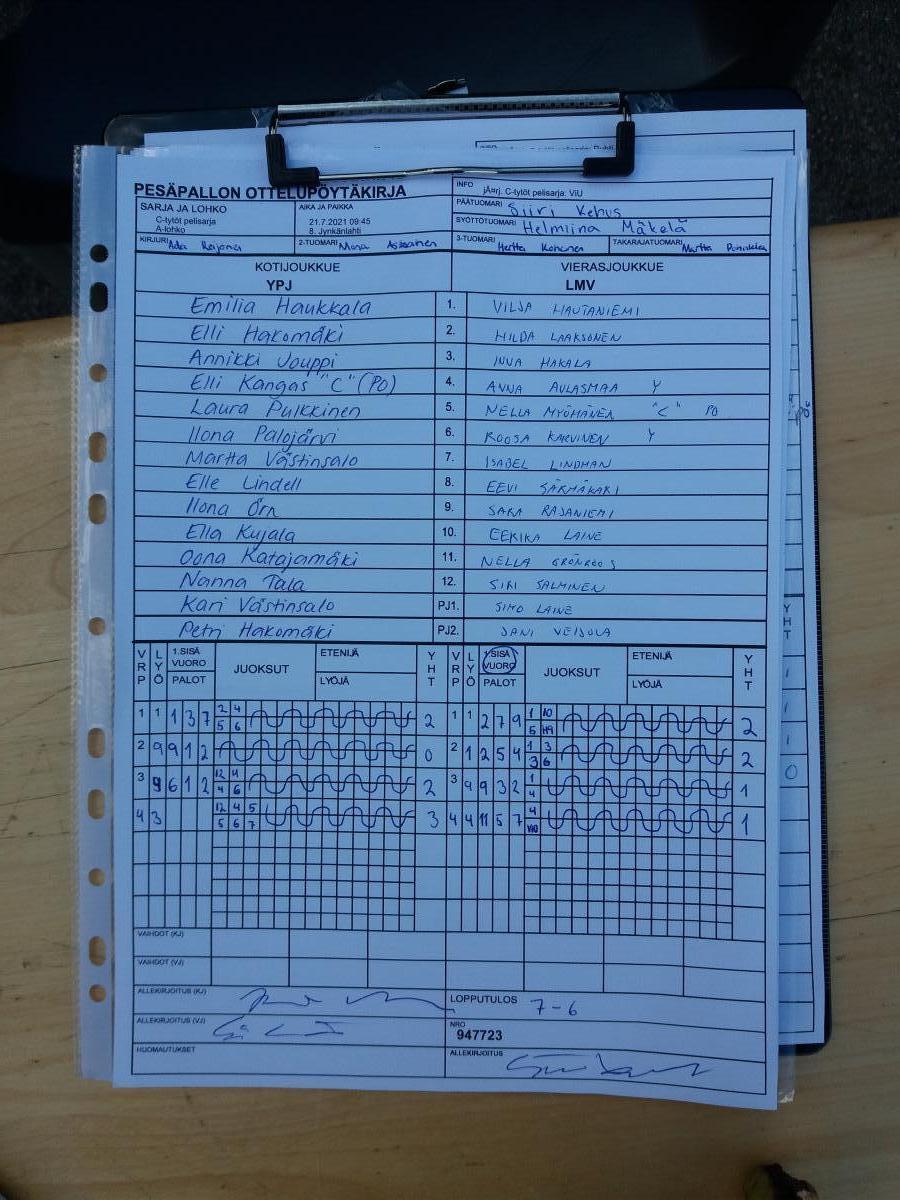 PESÄPALLON OTTELUPÖYTÄKIRJA
INFO
jÄrj. C-tytöt pelisarja: ViU
SARJA JA LOHKO
C-tytöt pelisarja
A-lohko
AIKA JA PAIKKA
21.7.2021 09:45
8. Jynkänlahti
PÄÄTUOMARI Siiri Kehus
SYÖTTÖTUOMARI Helmiina Mäkelä
KIRJURI Ada
2-TUOMARI Mona
3-TUOMARI Hertta Kohonen
TAKARAJATUOMARI Martta
KOTIJOUKKUE
YPJ
VIERASJOUKKUE
LMV
Emilia Haukkala 1. VILJA HAUTANIEMI
Elli Hakomäki 2. HILDA LAAKSONEN
Annikki Jouppi 3. INNA HAKALA
Elli Kangas "C" (PO) 4. ANNA AULASMAA Y
Laura Pulkkinen 5. NELLA MYÖHÄNEN "C" PO
Ilona Palojärvi 6. ROOSA KARVINEN Y
Martta Västinsalo 7. ISABEL LINDMAN
Elle Lindell 8. EEVI SÄRMÄKARI
Ilona Örn 9. SARA RAJANIEMI
Ella Kujala 10. EERIKA LAINE
Oona Katajamäki 11. NELLA GRÖNROOS
Nanna Tala 12. SIRI SALMINEN
Kari Västinsalo PJ1. SIMO LAINE
Petri Hakomäki PJ2. JANI VEIJOLA
VRP LYÖ 1.SISÄ VUORO PALOT JUOKSUT ETENIJÄ LYÖJÄ YHT VRP LYÖ 1.SISÄ VUORO PALOT JUOKSUT ETENIJÄ LYÖJÄ YHT
1 1 1 3 7 2 4 2 1 1 2 7 9 1 10 2
5 6 5
2 9 9 1 2 0 2 1 2 5 4 1 3 2
3 6
3 9 6 1 2 12 4 2 3 9 9 3 2 1 1
4 6 4
4 3 12 4 5 3 4 4 11 5 7 4 1
5 6 7
VAIHDOT (KJ)
VAIHDOT (VJ)
ALLEKIRJOITUS (KJ)
LOPPUTULOS 7-6
ALLEKIRJOITUS (VJ)
NRO
947723
HUOMAUTUKSET
ALLEKIRJOITUS
YHT
0